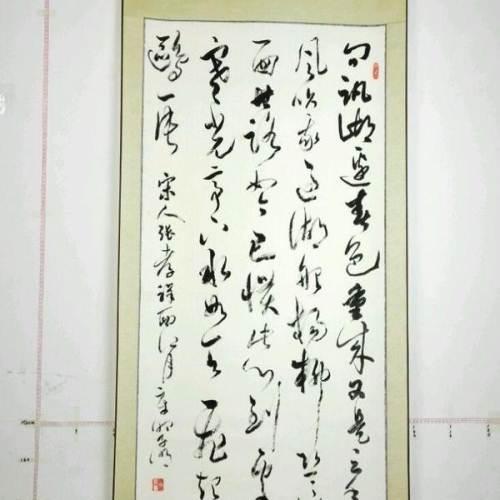 问讯湖边春色重来又是三
风吹我过湖船杨柳丝
面世路如今已惯此心到处
寒光亭下水如天飞起
鸥一片
宋人张孝祥西江月